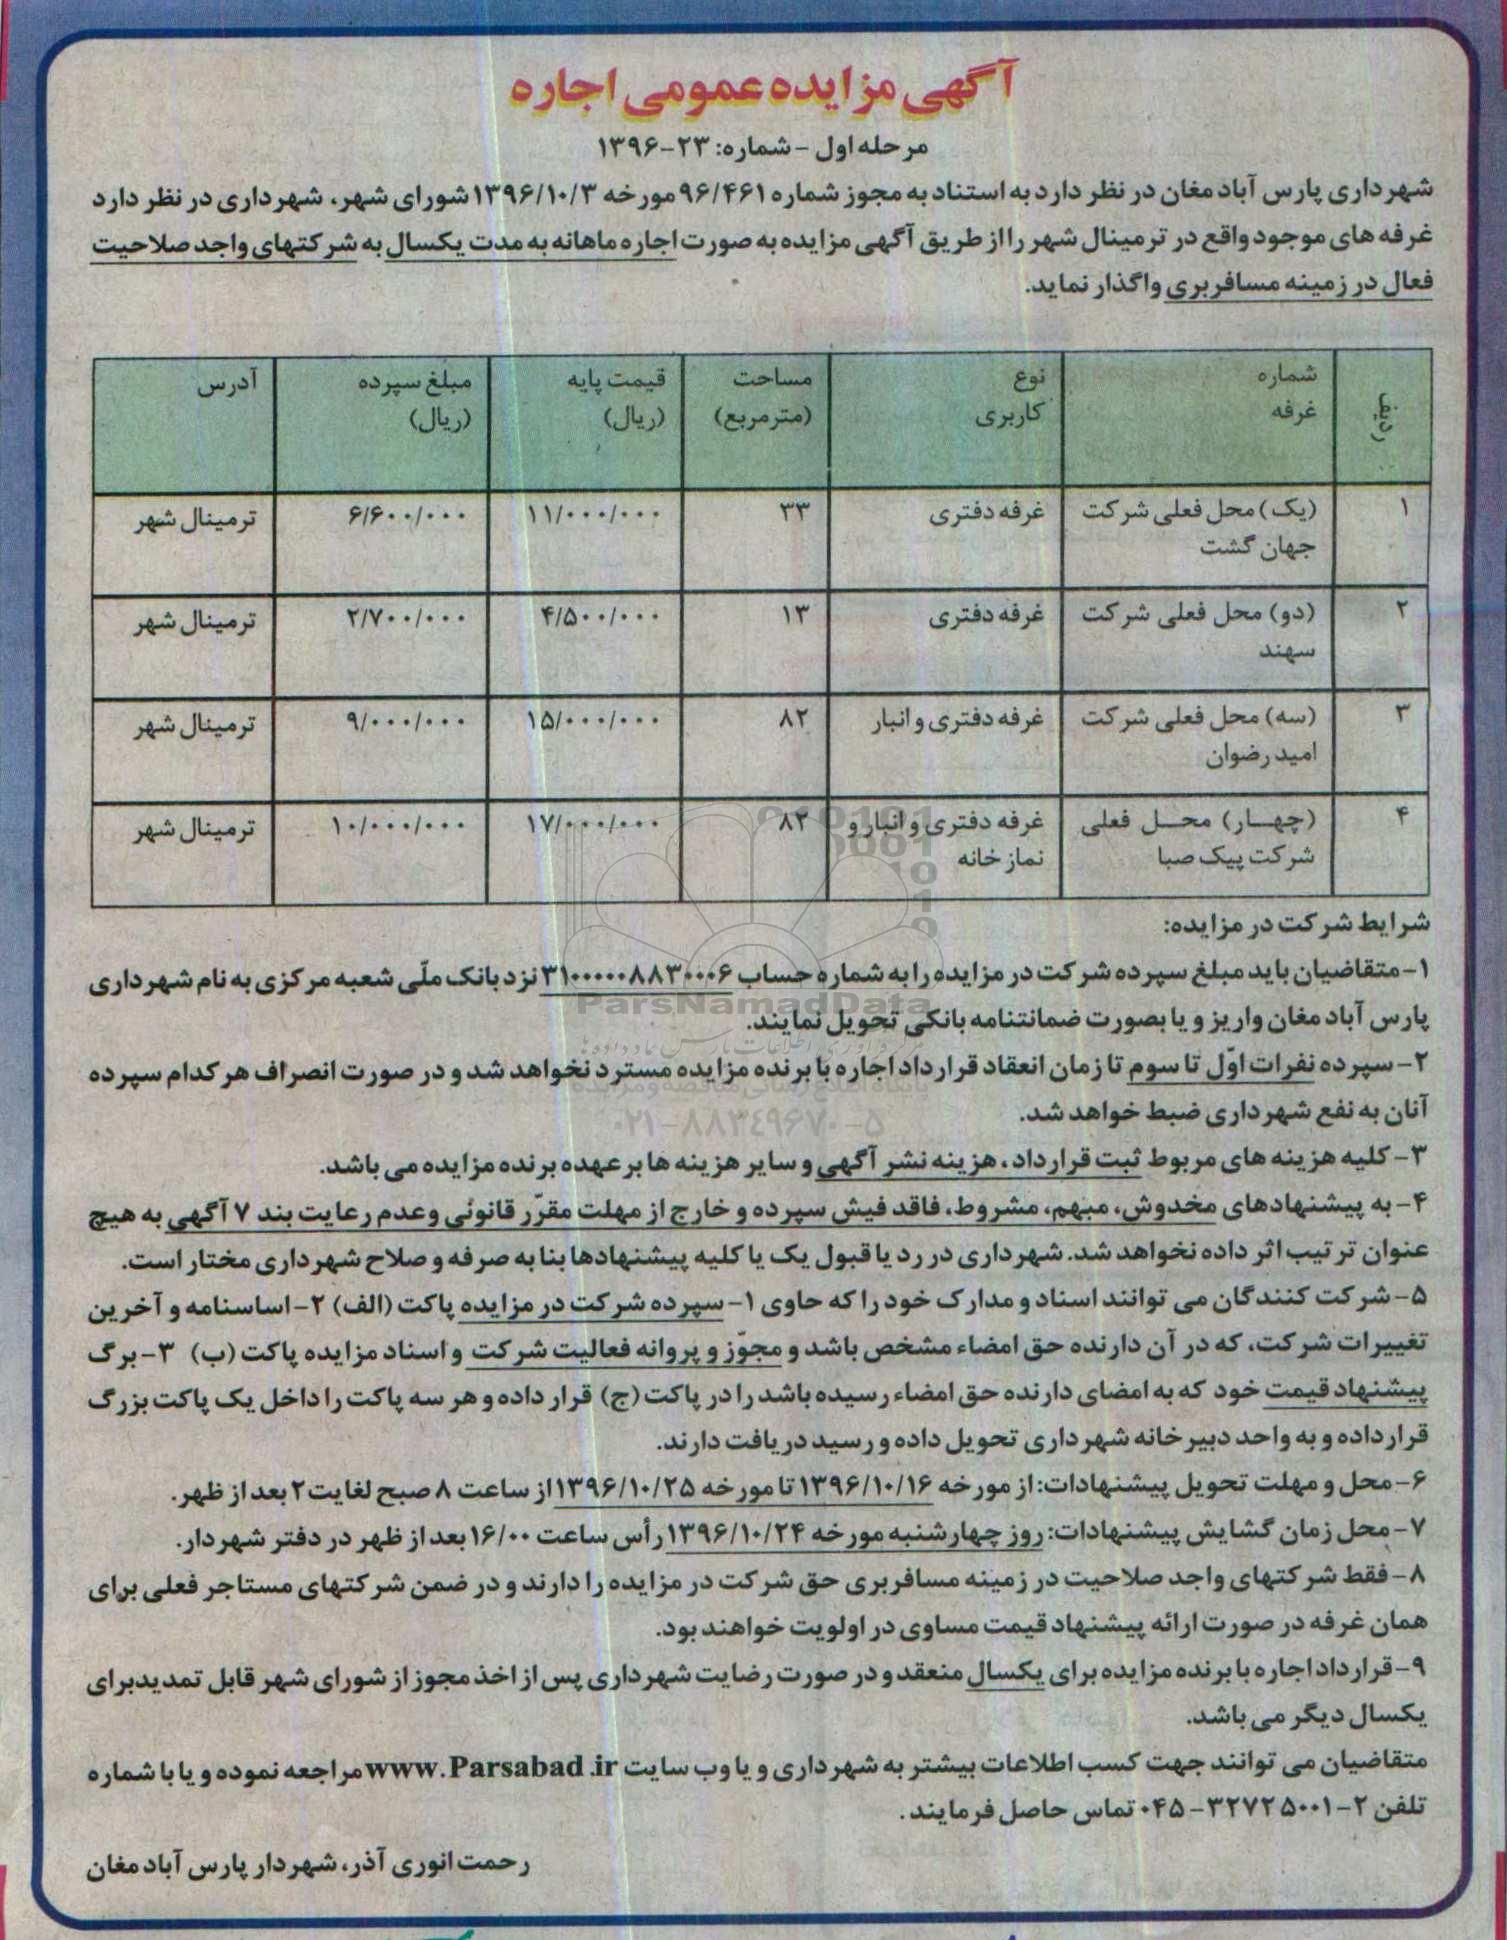 آگهی مزایده عمومی اجاره
مرحله اول - شماره: ۲۳-۱۳۹۶
شهرداری پارس آباد مغان در نظر دارد به استناد به مجوز شماره ۹۶/۴۶۱ مورخه ۱۳۹۶/۱۰/۳ شورای شهر، شهرداری در نظر دارد
غرفه های موجود واقع در ترمینال شهر را از طریق آگهی مزایده به صورت اجاره ماهانه به مدت یکسال به شرکتهای واجد صلاحیت
فعال در زمینه مسافربری واگذار نماید.
ردیف | شماره غرفه | نوع کاربری | مساحت (مترمربع) | قیمت پایه (ریال) | مبلغ سپرده (ریال) | آدرس
۱ | (یک) محل فعلی شرکت جهان گشت | غرفه دفتری | ۳۳ | ۱۱/۰۰۰/۰۰۰ | ۶/۶۰۰/۰۰۰ | ترمینال شهر
۲ | (دو) محل فعلی شرکت سهند | غرفه دفتری | ۱۳ | ۴/۵۰۰/۰۰۰ | ۲/۷۰۰/۰۰۰ | ترمینال شهر
۳ | (سه) محل فعلی شرکت امید رضوان | غرفه دفتری و انبار | ۸۲ | ۱۵/۰۰۰/۰۰۰ | ۹/۰۰۰/۰۰۰ | ترمینال شهر
۴ | (چهار) محل فعلی شرکت پیک صبا | غرفه دفتری و انبار و نماز خانه | ۸۲ | ۱۷/۰۰۰/۰۰۰ | ۱۰/۰۰۰/۰۰۰ | ترمینال شهر
شرایط شرکت در مزایده:
۱- متقاضیان باید مبلغ سپرده شرکت در مزایده را به شماره حساب ۳۱۰۰۰۰۰۸۸۳۰۰۰۶ نزد بانک ملّی شعبه مرکزی به نام شهرداری
پارس آباد مغان واریز و یا بصورت ضمانتنامه بانکی تحویل نمایند.
۲- سپرده نفرات اوّل تا سوم تا زمان انعقاد قرارداد اجاره با برنده مزایده مسترد نخواهد شد و در صورت انصراف هر کدام سپرده
آنان به نفع شهرداری ضبط خواهد شد.
۳- کلیه هزینه های مربوط ثبت قرارداد، هزینه نشر آگهی و سایر هزینه ها بر عهده برنده مزایده می باشد.
۴- به پیشنهادهای مخدوش، مبهم، مشروط، فاقد فیش سپرده و خارج از مهلت مقرّر قانونی و عدم رعایت بند ۷ آگهی به هیچ
عنوان ترتیب اثر داده نخواهد شد. شهرداری در رد یا قبول یک یا کلیه پیشنهادها بنا به صرفه و صلاح شهرداری مختار است.
۵- شرکت کنندگان می توانند اسناد و مدارک خود را که حاوی ۱- سپرده شرکت در مزایده پاکت (الف) ۲- اساسنامه و آخرین
تغییرات شرکت، که در آن دارنده حق امضاء مشخص باشد و مجوّز و پروانه فعالیت شرکت و اسناد مزایده پاکت (ب) ۳- برگ
پیشنهاد قیمت خود که به امضای دارنده حق امضاء رسیده باشد را در پاکت (ج) قرار داده و هر سه پاکت را داخل یک پاکت بزرگ
قرار داده و به واحد دبیرخانه شهرداری تحویل داده و رسید دریافت دارند.
۶- محل و مهلت تحویل پیشنهادات: از مورخه ۱۳۹۶/۱۰/۱۶ تا مورخه ۱۳۹۶/۱۰/۲۵ از ساعت ۸ صبح لغایت ۲ بعد از ظهر.
۷- محل زمان گشایش پیشنهادات: روز چهارشنبه مورخه ۱۳۹۶/۱۰/۲۴ رأس ساعت ۱۶/۰۰ بعد از ظهر در دفتر شهردار.
۸- فقط شرکتهای واجد صلاحیت در زمینه مسافربری حق شرکت در مزایده را دارند و در ضمن شرکتهای مستاجر فعلی برای
همان غرفه در صورت ارائه پیشنهاد قیمت مساوی در اولویت خواهند بود.
۹- قرارداد اجاره با برنده مزایده برای یکسال منعقد و در صورت رضایت شهرداری پس از اخذ مجوز از شورای شهر قابل تمدید برای
یکسال دیگر می باشد.
متقاضیان می توانند جهت کسب اطلاعات بیشتر به شهرداری و یا وب سایت www.Parsabad.ir مراجعه نموده و یا با شماره
تلفن ۲-۳۲۷۲۵۰۰۱-۰۴۵ تماس حاصل فرمایند.
رحمت انوری آذر، شهردار پارس آباد مغان
ParsNamadData
۰۲۱-۸۸۳۴۹۶۷۰-۵